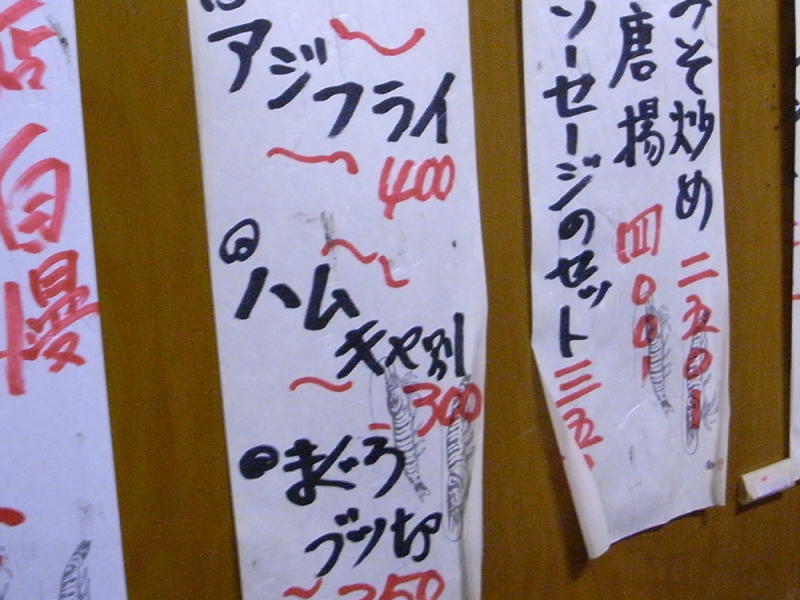 アジ
フライ
400
ハム
キャ別
300
まぐろ
ブツ切
350
そ炒め 二五〇
唐揚 四〇〇
ソーセージのセット 三五
店
自慢